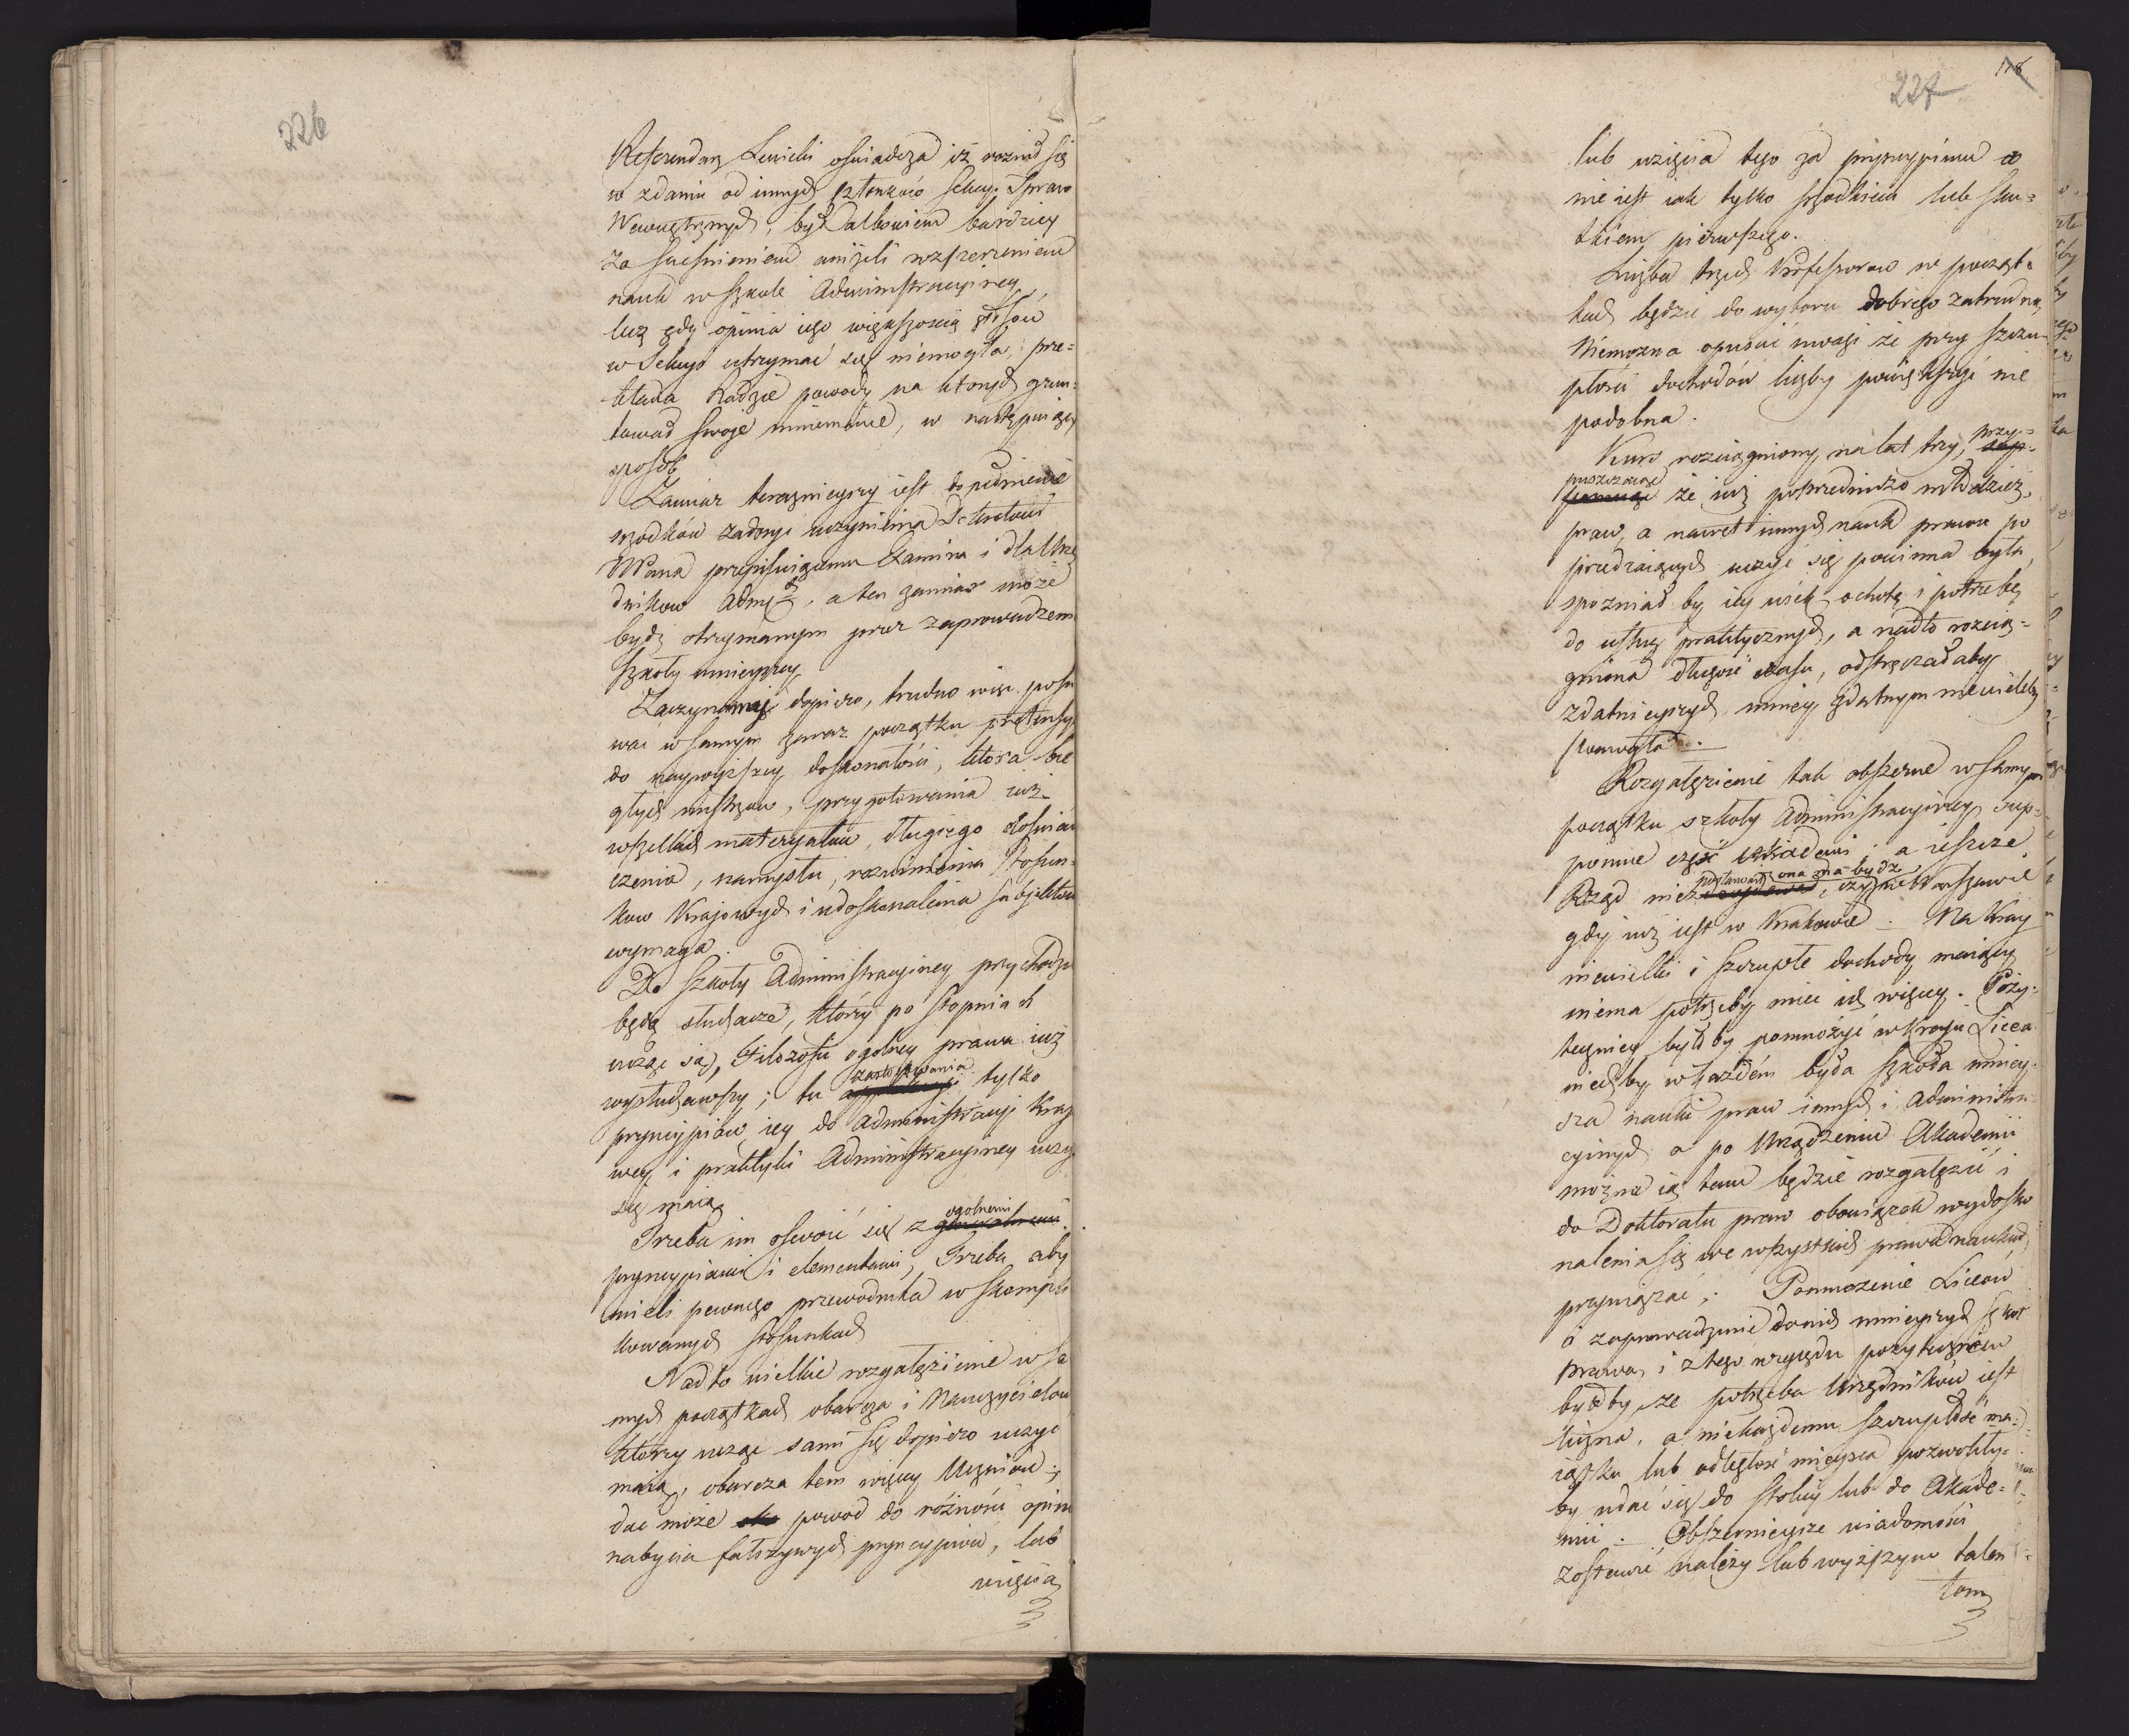 226
Referendarz Lewicki oświadcza iż roznił się
w zdaniu od innych członków Sekcyi Spraw
Wewnętrznych, był albowiem bardziey
za sciesnieniem aniżeli rozszerzeniem
nauk w szkole Administracyiney,
lecz gdy opinia iego większoscią głosow
w Sekcyi utrzymać się niemogła, prze=
kłada Radzie powody na ktorych grun=
tował swoje mniemanie, w następuiący
sposob
Zamiar teraznieyszy iest dopełnienie
srzodków zadosyć uczynienia Dekretowi
Pana przepisuiącemu Examina i dla Urzę
dnikow Admych, a ten zamiar może
bydź otrzymanym przez zaprowadzenie
szkoły mnieyszey
Zaczynamy dopiero, trudno więc posu
wać w samym zaraz początku pretensyi
do naywyższey doskonałości, ktora bie
głych mistrzow, przygotowania iuż
wszelkich materyałow, długiego doświad
czenia, namysłu, rozwinienia stosun=
kow Krajowych i udoskonalenia subjektow
wymaga.
Do szkoły Administracyiney przychodzić
będą słuchacze, którzy po stopniach
ucząc się, Filozofii ogolney prawa iuż
wysłuchawszy; tu zastosowania tylko
pryncypiów iey do Administracyi Kraio
wey i praktyki Administracyiney uczyć
się maią
Trzeba im oswoić się z ogolnemi
pryncypiami i elementami, Trzeba aby
mieli pewnego przewodnika w skompli
kowanych stosunkach
Nadto wielkie rozgałęzienie w sa
mych początkach obarcza i Nauczycielow
którzy ucząc sami się dopiero uczyć
maią, obarcza tem więcey Uczniow;
dać może powod do różności opinii
nabycia fałszywych pryncypiow, lub
wzięcia
118
227
lub wzięcia tego za pryncypium co
nie iest iak tylko srzodkiem lub sku=
tkiem pierwszego.
Liczba trzech Professorow w począt=
kach będzie do wyboru dobrego zatrudną
Niemożna opuścić uwagi że przy szczu=
płości dochodów liczby powiększyć nie
podobna.
Kurs rozciągniony na lat trzy, przy=
puszczaiąc że iuż poprzedniczo młodzież,
praw, a nawet innych nauk prawu po
przedzaiących uczyć się powinna była,
spozniał by iey wiek ochotę i potrzebę
do usług praktycznych, a nadto rozcią=
gniona długość czasu, odstręczałaby
zdatnieyszych mniey zdatnym niewieleby
pomogła.
Rozgałęzienie tak obszerne w samym
początku szkoły Administracyiney sup=
ponuie część Akademii a ieszcze
Rząd nie postanowił, ona ma bydź czy w Warszawie
gdy iuż iest w Krakowie. Na Kray
niewielki i szczupłe dochody maiący
niema potrzeby mieć ich więcey. Poży=
teczniey byłby pomnożyć w Kraju Licea
niechby w każdém była szkoła mniey=
sza nauki praw innych i Administra
cyinych a po Urządzeniu Akademii
można ią tam będzie rozgałęzić i
do Doktoratu praw obowiązek wydosko
nalenia się we wszystkich prawa naukach
przywiązać; Pomnożenie Liceow
i zaprowadzenie do nich mnieyszych szkoł
Prawa i z tego względu pożyteczném
byłby, że potrzeba Urzędników iest
liczna, a niekażdemu szczupłość ma=
iątku lub odległość mieysca pozwoliły=
by udać się do stolicy lub do Akade=
mii. Obszernieysze wiadomości
zostawić należy lub wyższym talen=
tom